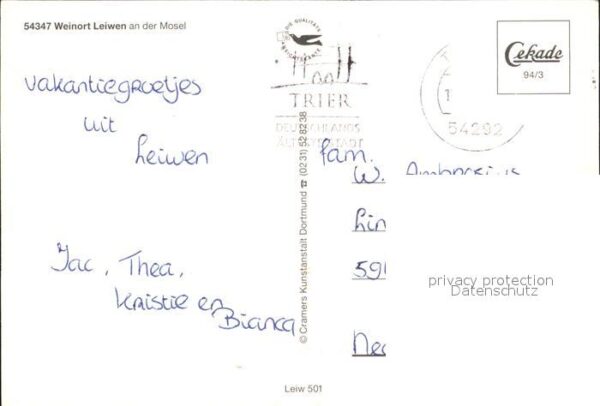 54347 Weinort Leiwen an der Mosel
vakantiegroetjes
uit
Leiwen
Jac, Thea,
Kristie en
Bianca
© Cramers Kunstanstalt Dortmund ☎ (0231) 528238
DIE QUALITÄTS
TRIER
DEUTSCHLANDS
ÄLTESTE STADT
54292
Cekade
94/3
fam.
W. Ambrosius
Lin
59
Ned
privacy protection
Datenschutz
Leiw 501